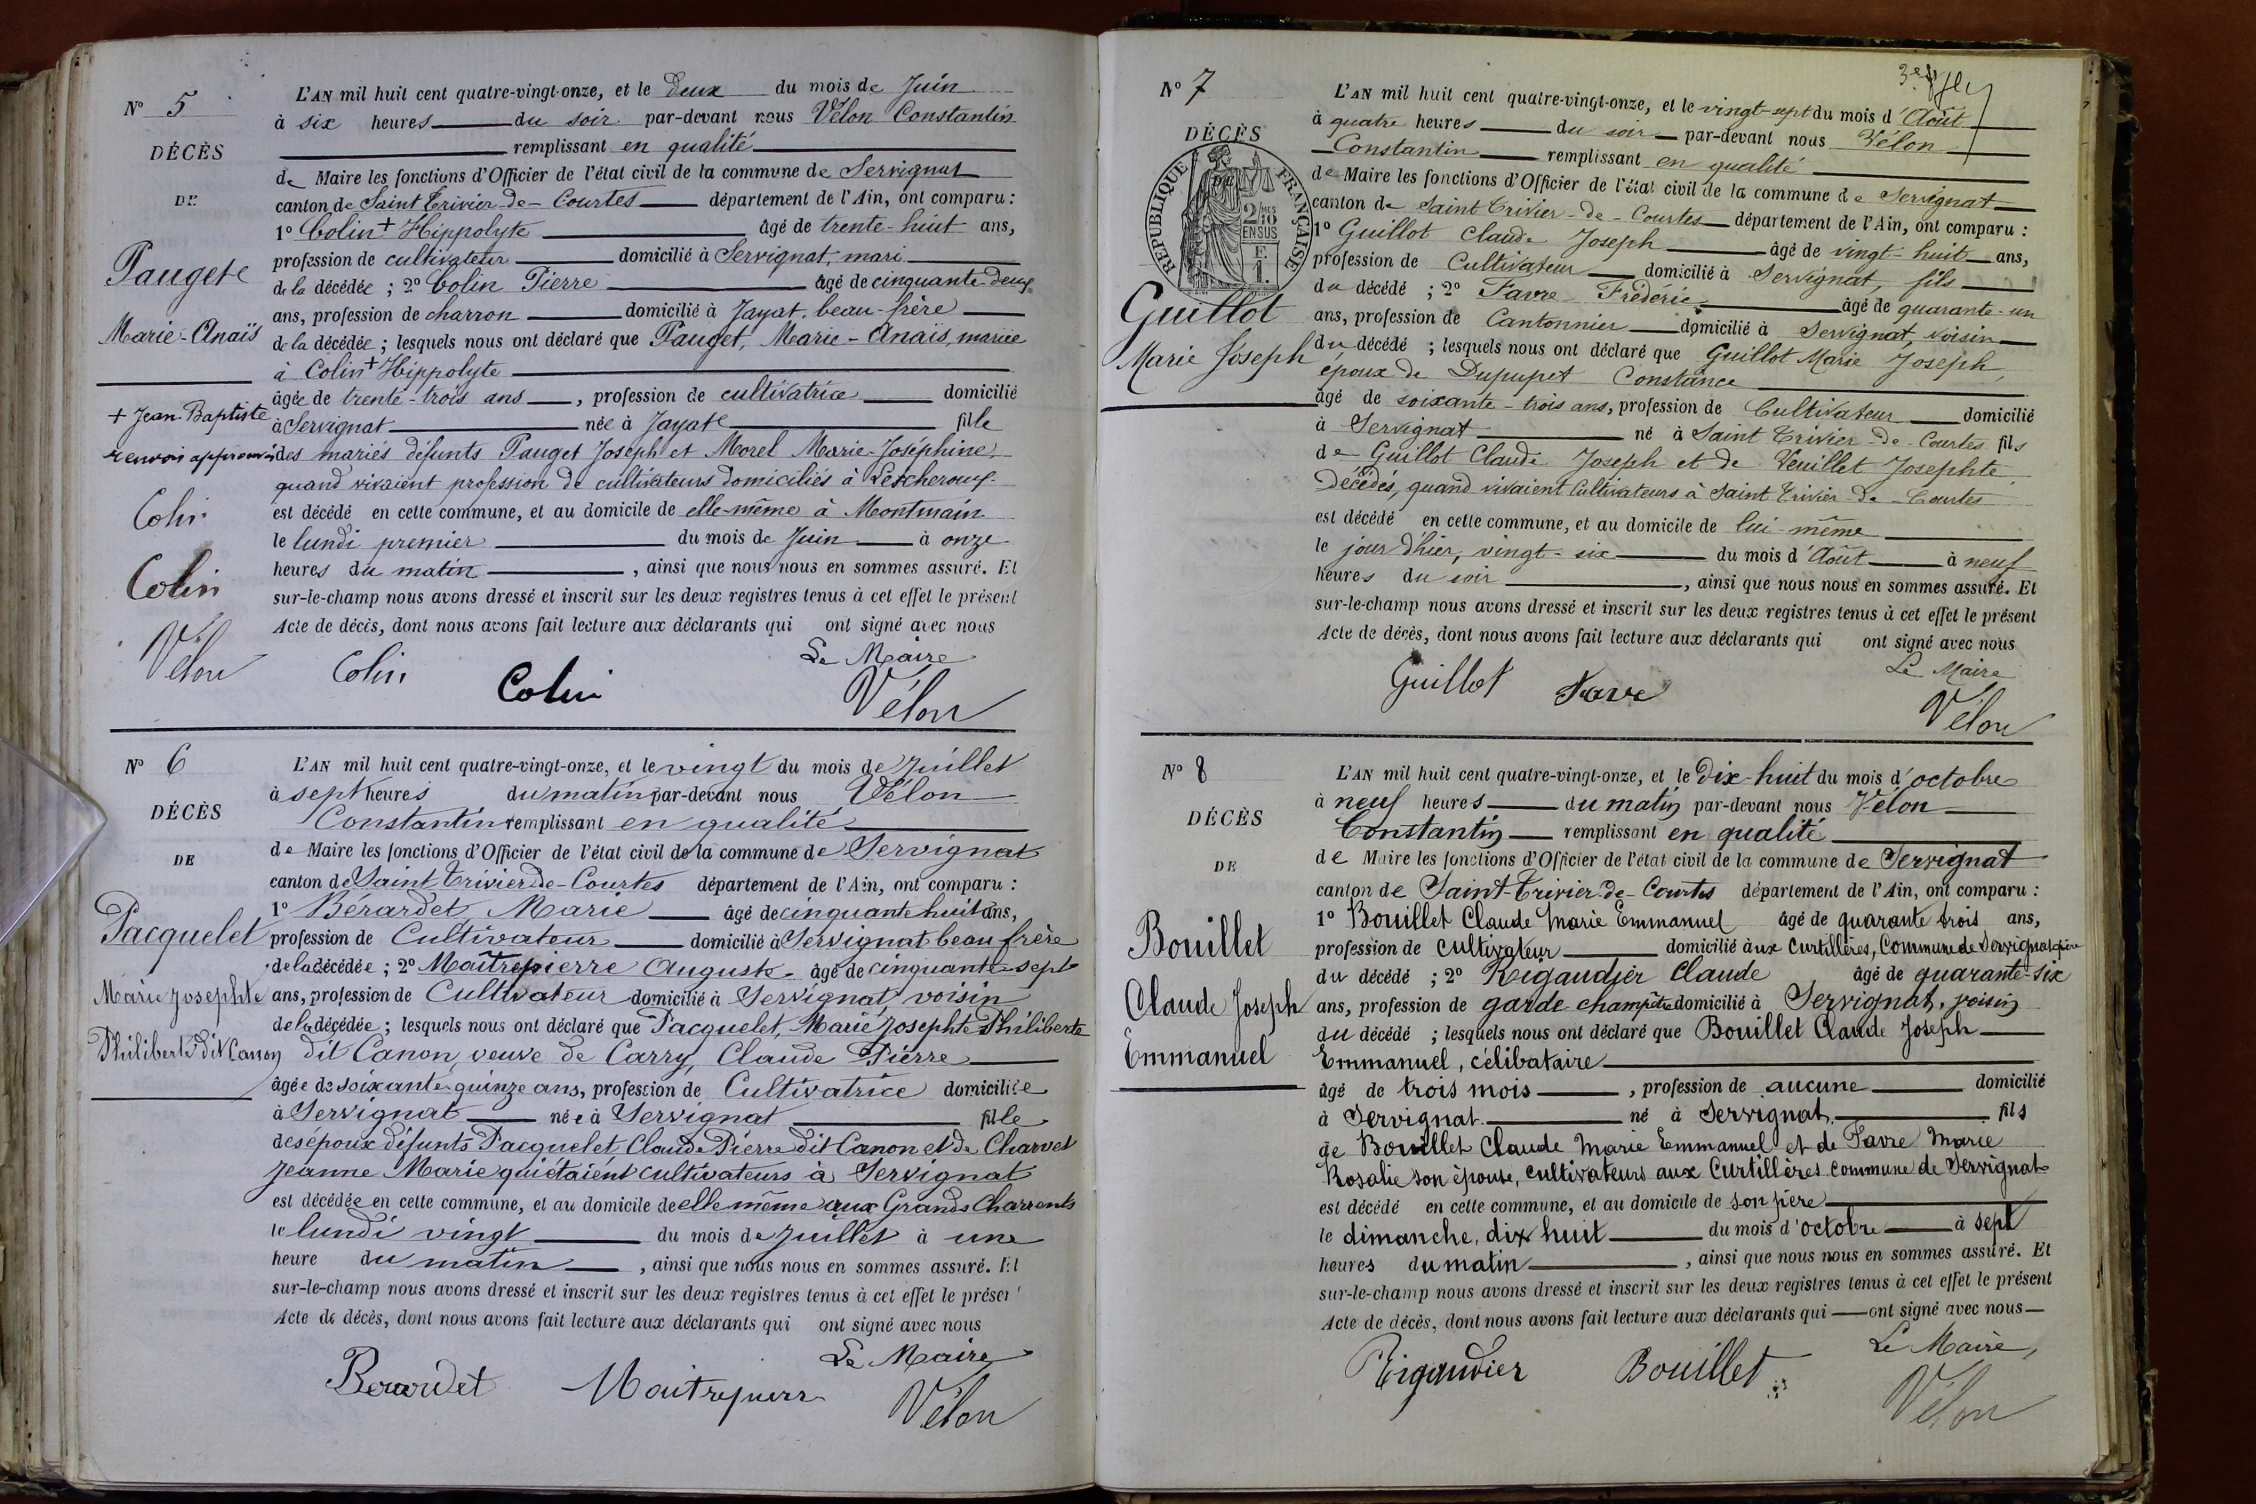 N° 5
DÉCÈS
DE
Pauget
Marie-Anaïs
+ Jean-Baptiste
renvoi approuvé
Colin
Colin
Vélon
L'AN mil huit cent quatre-vingt-onze, et le deux du mois de Juin
à six heures du soir par-devant nous Vélon Constantin
remplissant en qualité
de Maire les fonctions d'Officier de l'état civil de la commune de Servignat
canton de Saint Trivier-de-Courtes département de l'Ain, ont comparu :
1° Colin + Hippolyte âgé de trente-huit ans,
profession de cultivateur domicilié à Servignat, mari
de la décédée ; 2° Colin Pierre âgé de cinquante-deux
ans, profession de charron domicilié à Jayat, beau-frère
de la décédée ; lesquels nous ont déclaré que Pauget, Marie-Anaïs, mariée
à Colin + Hippolyte
âgée de trente-trois ans, profession de cultivatrice domicilié
à Servignat née à Jayat fille
des mariés défunts Pauget Joseph et Morel Marie-Joséphine
quand vivaient profession de cultivateurs domiciliés à Lescheroux
est décédé en cette commune, et au domicile de elle-même à Montmain
le lundi premier du mois de Juin à onze
heures du matin, ainsi que nous nous en sommes assuré. Et
sur-le-champ nous avons dressé et inscrit sur les deux registres tenus à cet effet le présent
Acte de décès, dont nous avons fait lecture aux déclarants qui ont signé avec nous
Le Maire
Colin Colin Vélon
N° 6
DÉCÈS
DE
Pacquelet
Marie Josephte
Philiberte dit Canon
L'AN mil huit cent quatre-vingt-onze, et le vingt du mois de Juillet
à sept heures du matin par-devant nous Vélon
Constantin remplissant en qualité
de Maire les fonctions d'Officier de l'état civil de la commune de Servignat
canton de Saint Trivier-de-Courtes département de l'Ain, ont comparu :
1° Bérardet Marie âgé de cinquante huit ans,
profession de Cultivateur domicilié à Servignat beau frère
de la décédée ; 2° Maîtrepierre Auguste âgé de cinquante-sept
ans, profession de Cultivateur domicilié à Servignat voisin
de la décédée ; lesquels nous ont déclaré que Pacquelet, Marie Josephte Philiberte
dit Canon, veuve de Carry, Claude Pierre
âgée de soixante-quinze ans, profession de Cultivatrice domiciliée
à Servignat née à Servignat fille
des époux défunts Pacquelet Claude Pierre dit Canon et de Charvet
Jeanne Marie qui étaient cultivateurs à Servignat
est décédée en cette commune, et au domicile de elle même aux Grands Charrents
le lundi vingt du mois de Juillet à une
heure du matin, ainsi que nous nous en sommes assuré. Et
sur-le-champ nous avons dressé et inscrit sur les deux registres tenus à cet effet le présent
Acte de décès, dont nous avons fait lecture aux déclarants qui ont signé avec nous
Le Maire
Berardet Maitrepierre Vélon
N° 7
DÉCÈS
RÉPUBLIQUE FRANÇAISE
2/10 EN SUS
Guillot
Marie Joseph
L'AN mil huit cent quatre-vingt-onze, et le vingt-sept du mois d'Août
à quatre heures du soir par-devant nous Vélon
Constantin remplissant en qualité
de Maire les fonctions d'Officier de l'état civil de la commune de Servignat
canton de Saint Trivier-de-Courtes département de l'Ain, ont comparu :
1° Guillot Claude Joseph âgé de vingt-huit ans,
profession de Cultivateur domicilié à Servignat, fils
du décédé ; 2° Favre Frédéric âgé de quarante-un
ans, profession de Cantonnier domicilié à Servignat, voisin
du décédé ; lesquels nous ont déclaré que Guillot Marie Joseph,
époux de Dupupet Constance
âgé de soixante-trois ans, profession de Cultivateur domicilié
à Servignat né à Saint Trivier-de-Courtes fils
de Guillot Claude Joseph et de Veuillet Josephte
Décédés, quand vivaient Cultivateurs à Saint Trivier-de-Courtes
est décédé en cette commune, et au domicile de lui-même
le jour d'hier, vingt-six du mois d'Août à neuf
heures du soir, ainsi que nous nous en sommes assuré. Et
sur-le-champ nous avons dressé et inscrit sur les deux registres tenus à cet effet le présent
Acte de décès, dont nous avons fait lecture aux déclarants qui ont signé avec nous
Le Maire
Guillot Favre Vélon
N° 8
DÉCÈS
DE
Bouillet
Claude Joseph
Emmanuel
L'AN mil huit cent quatre-vingt-onze, et le Dix-huit du mois d'octobre
à neuf heures du matin par-devant nous Vélon
Constantin remplissant en qualité
de Maire les fonctions d'Officier de l'état civil de la commune de Servignat
canton de Saint-Trivier-de-Courtes département de l'Ain, ont comparu :
1° Bouillet Claude Marie Emmanuel âgé de quarante trois ans,
profession de cultivateur domicilié aux Curtillères, Commune de Servignat père
du décédé ; 2° Rigaudier Claude âgé de quarante-six
ans, profession de garde champêtre domicilié à Servignat, voisin
du décédé ; lesquels nous ont déclaré que Bouillet Claude Joseph
Emmanuel, célibataire
âgé de trois mois, profession de aucune domicilié
à Servignat né à Servignat fils
de Bouillet Claude Marie Emmanuel et de Favre Marie
Rosalie son épouse, cultivateurs aux Curtillères commune de Servignat
est décédé en cette commune, et au domicile de son père
le dimanche, dix huit du mois d'octobre à sept
heures du matin, ainsi que nous nous en sommes assuré. Et
sur-le-champ nous avons dressé et inscrit sur les deux registres tenus à cet effet le présent
Acte de décès, dont nous avons fait lecture aux déclarants qui ont signé avec nous
Le Maire,
Rigaudier Bouillet Vélon